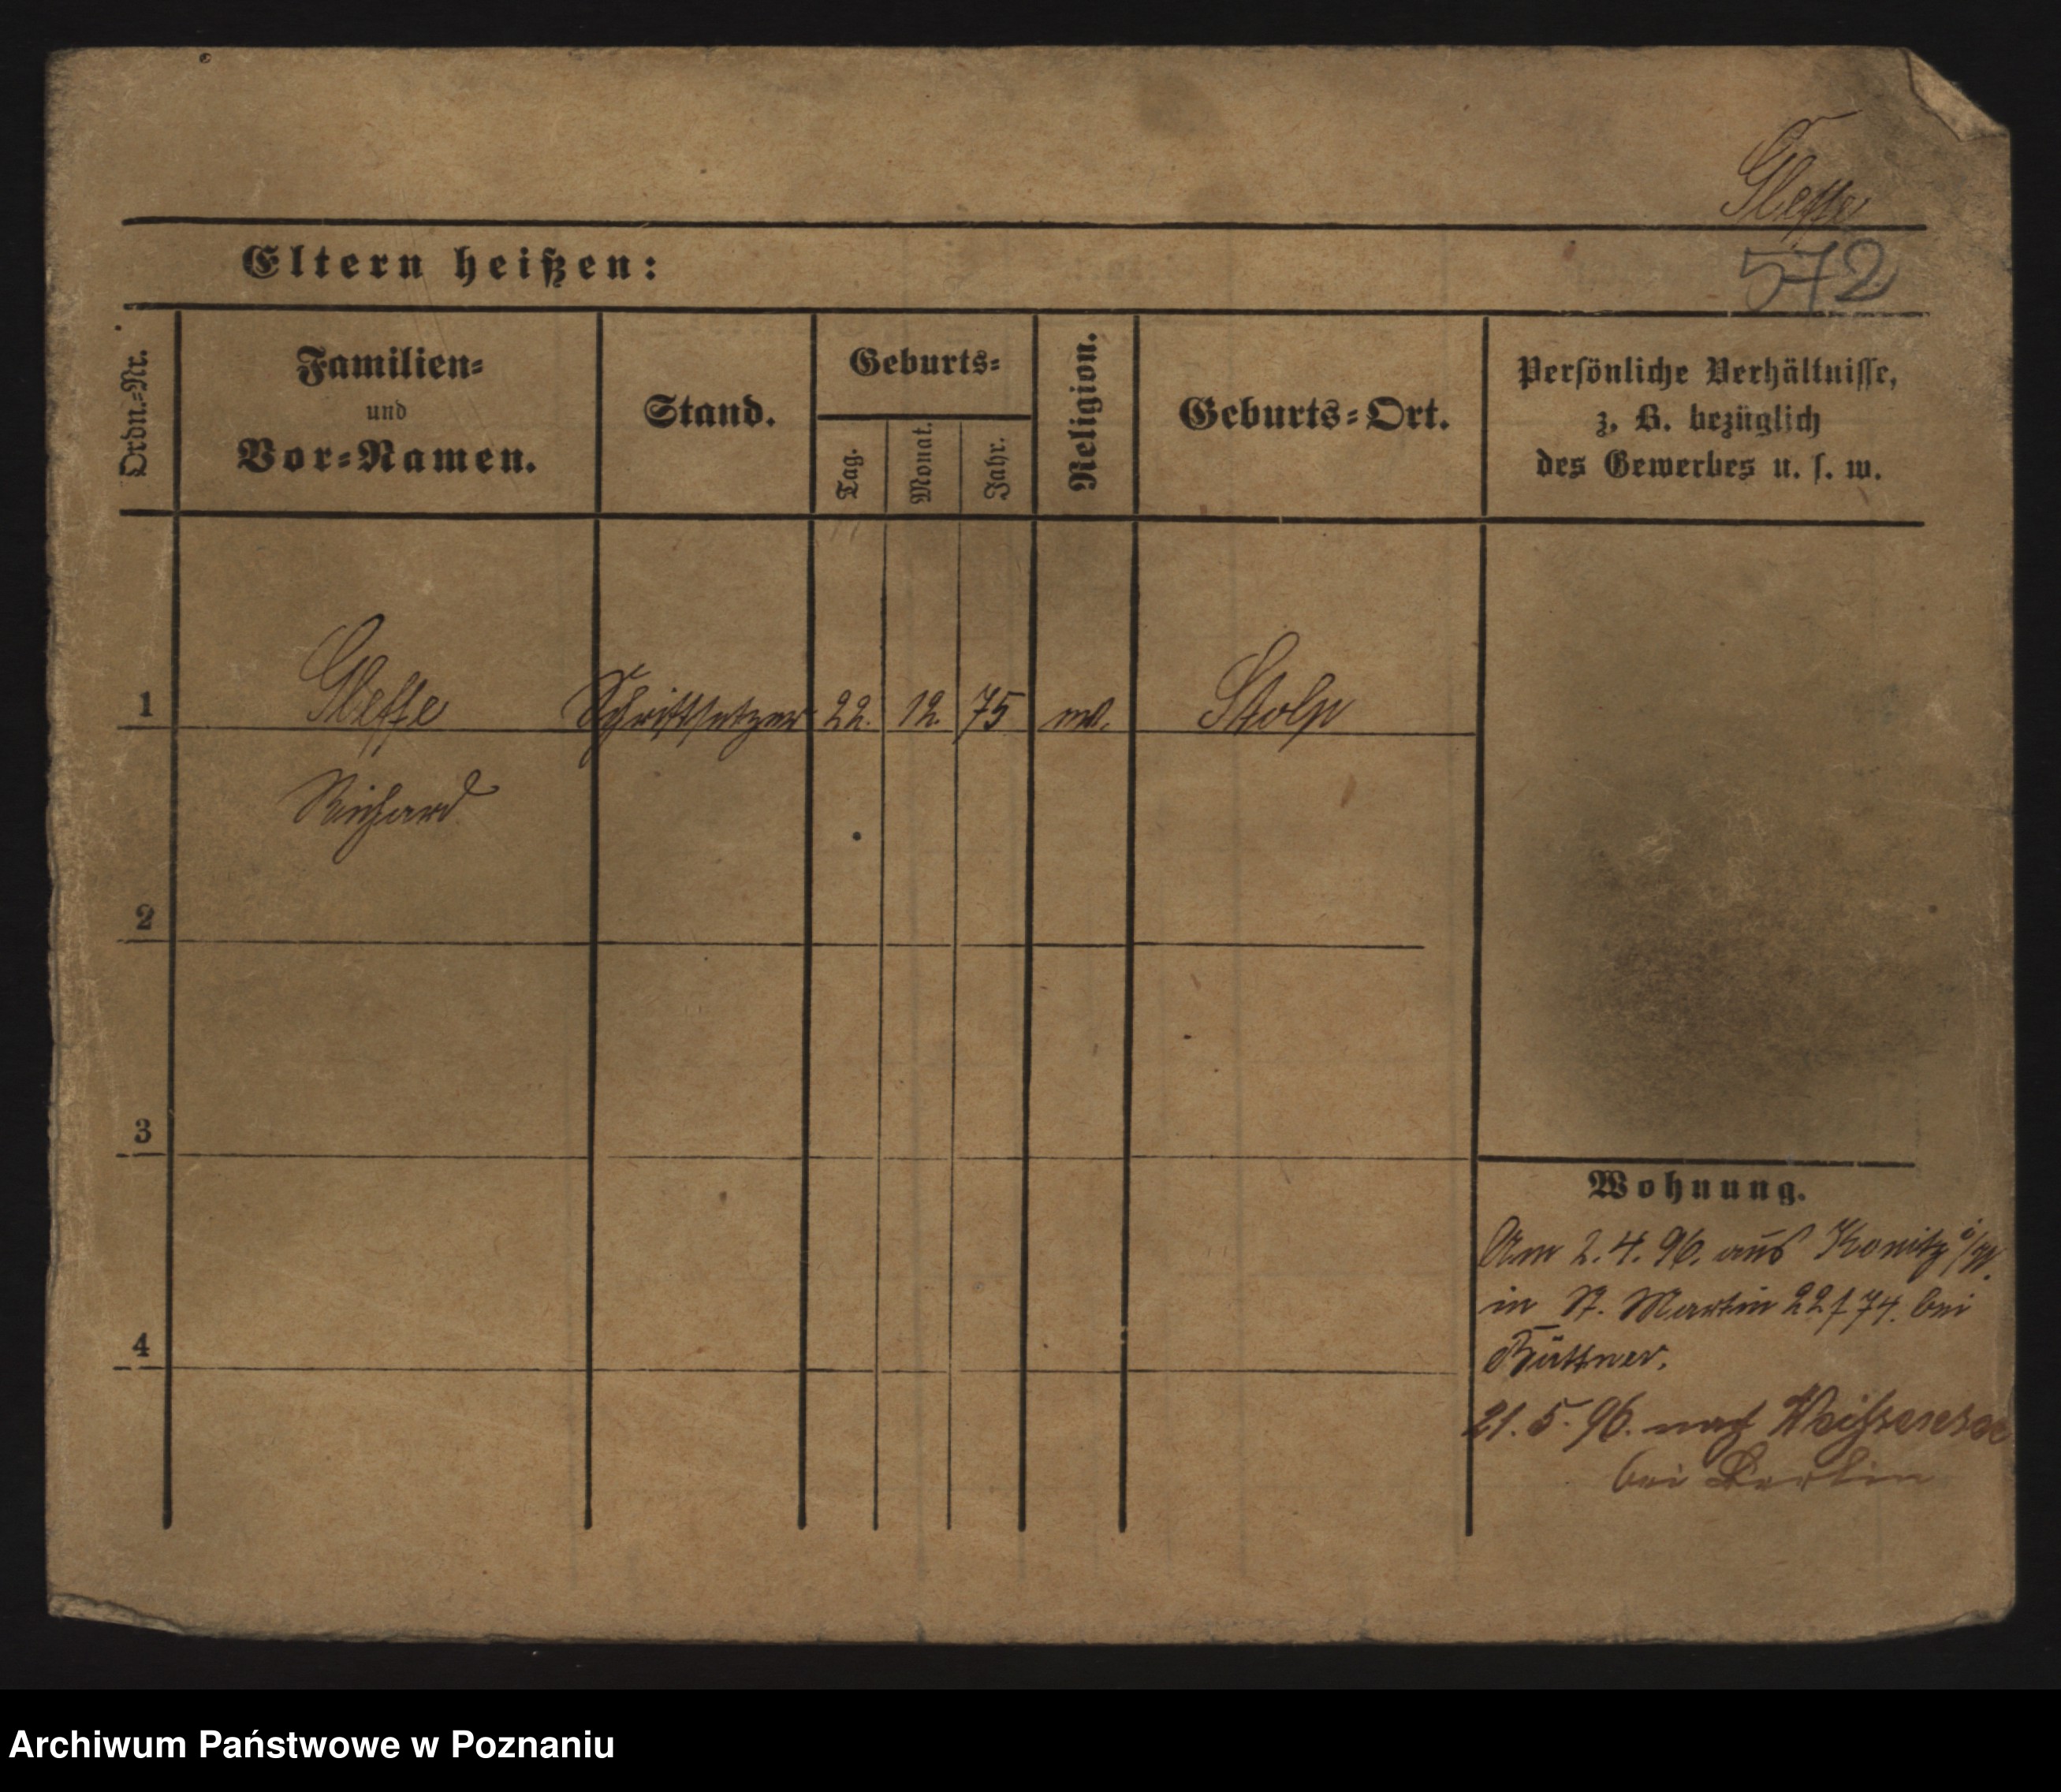 572
Eltern heißen:
Ordn.-Nr.
Familien-
und
Vor-Namen.
Stand.
Geburts-
Tag.
Monat.
Jahr.
Religion.
Geburts-Ort.
Persönliche Verhältnisse,
z. B. bezüglich
des Gewerbes u. s. w.
1
Schriftsetzer 22. 12. 75 Stolp
Richard
2
3
4
Wohnung.
Am 2.4.96. aus Konitz i/W.
in St. Martin 22 f 74. bei
Büttner.
21.5.96. nach Weissensee
bei Berlin
Archiwum Państwowe w Poznaniu